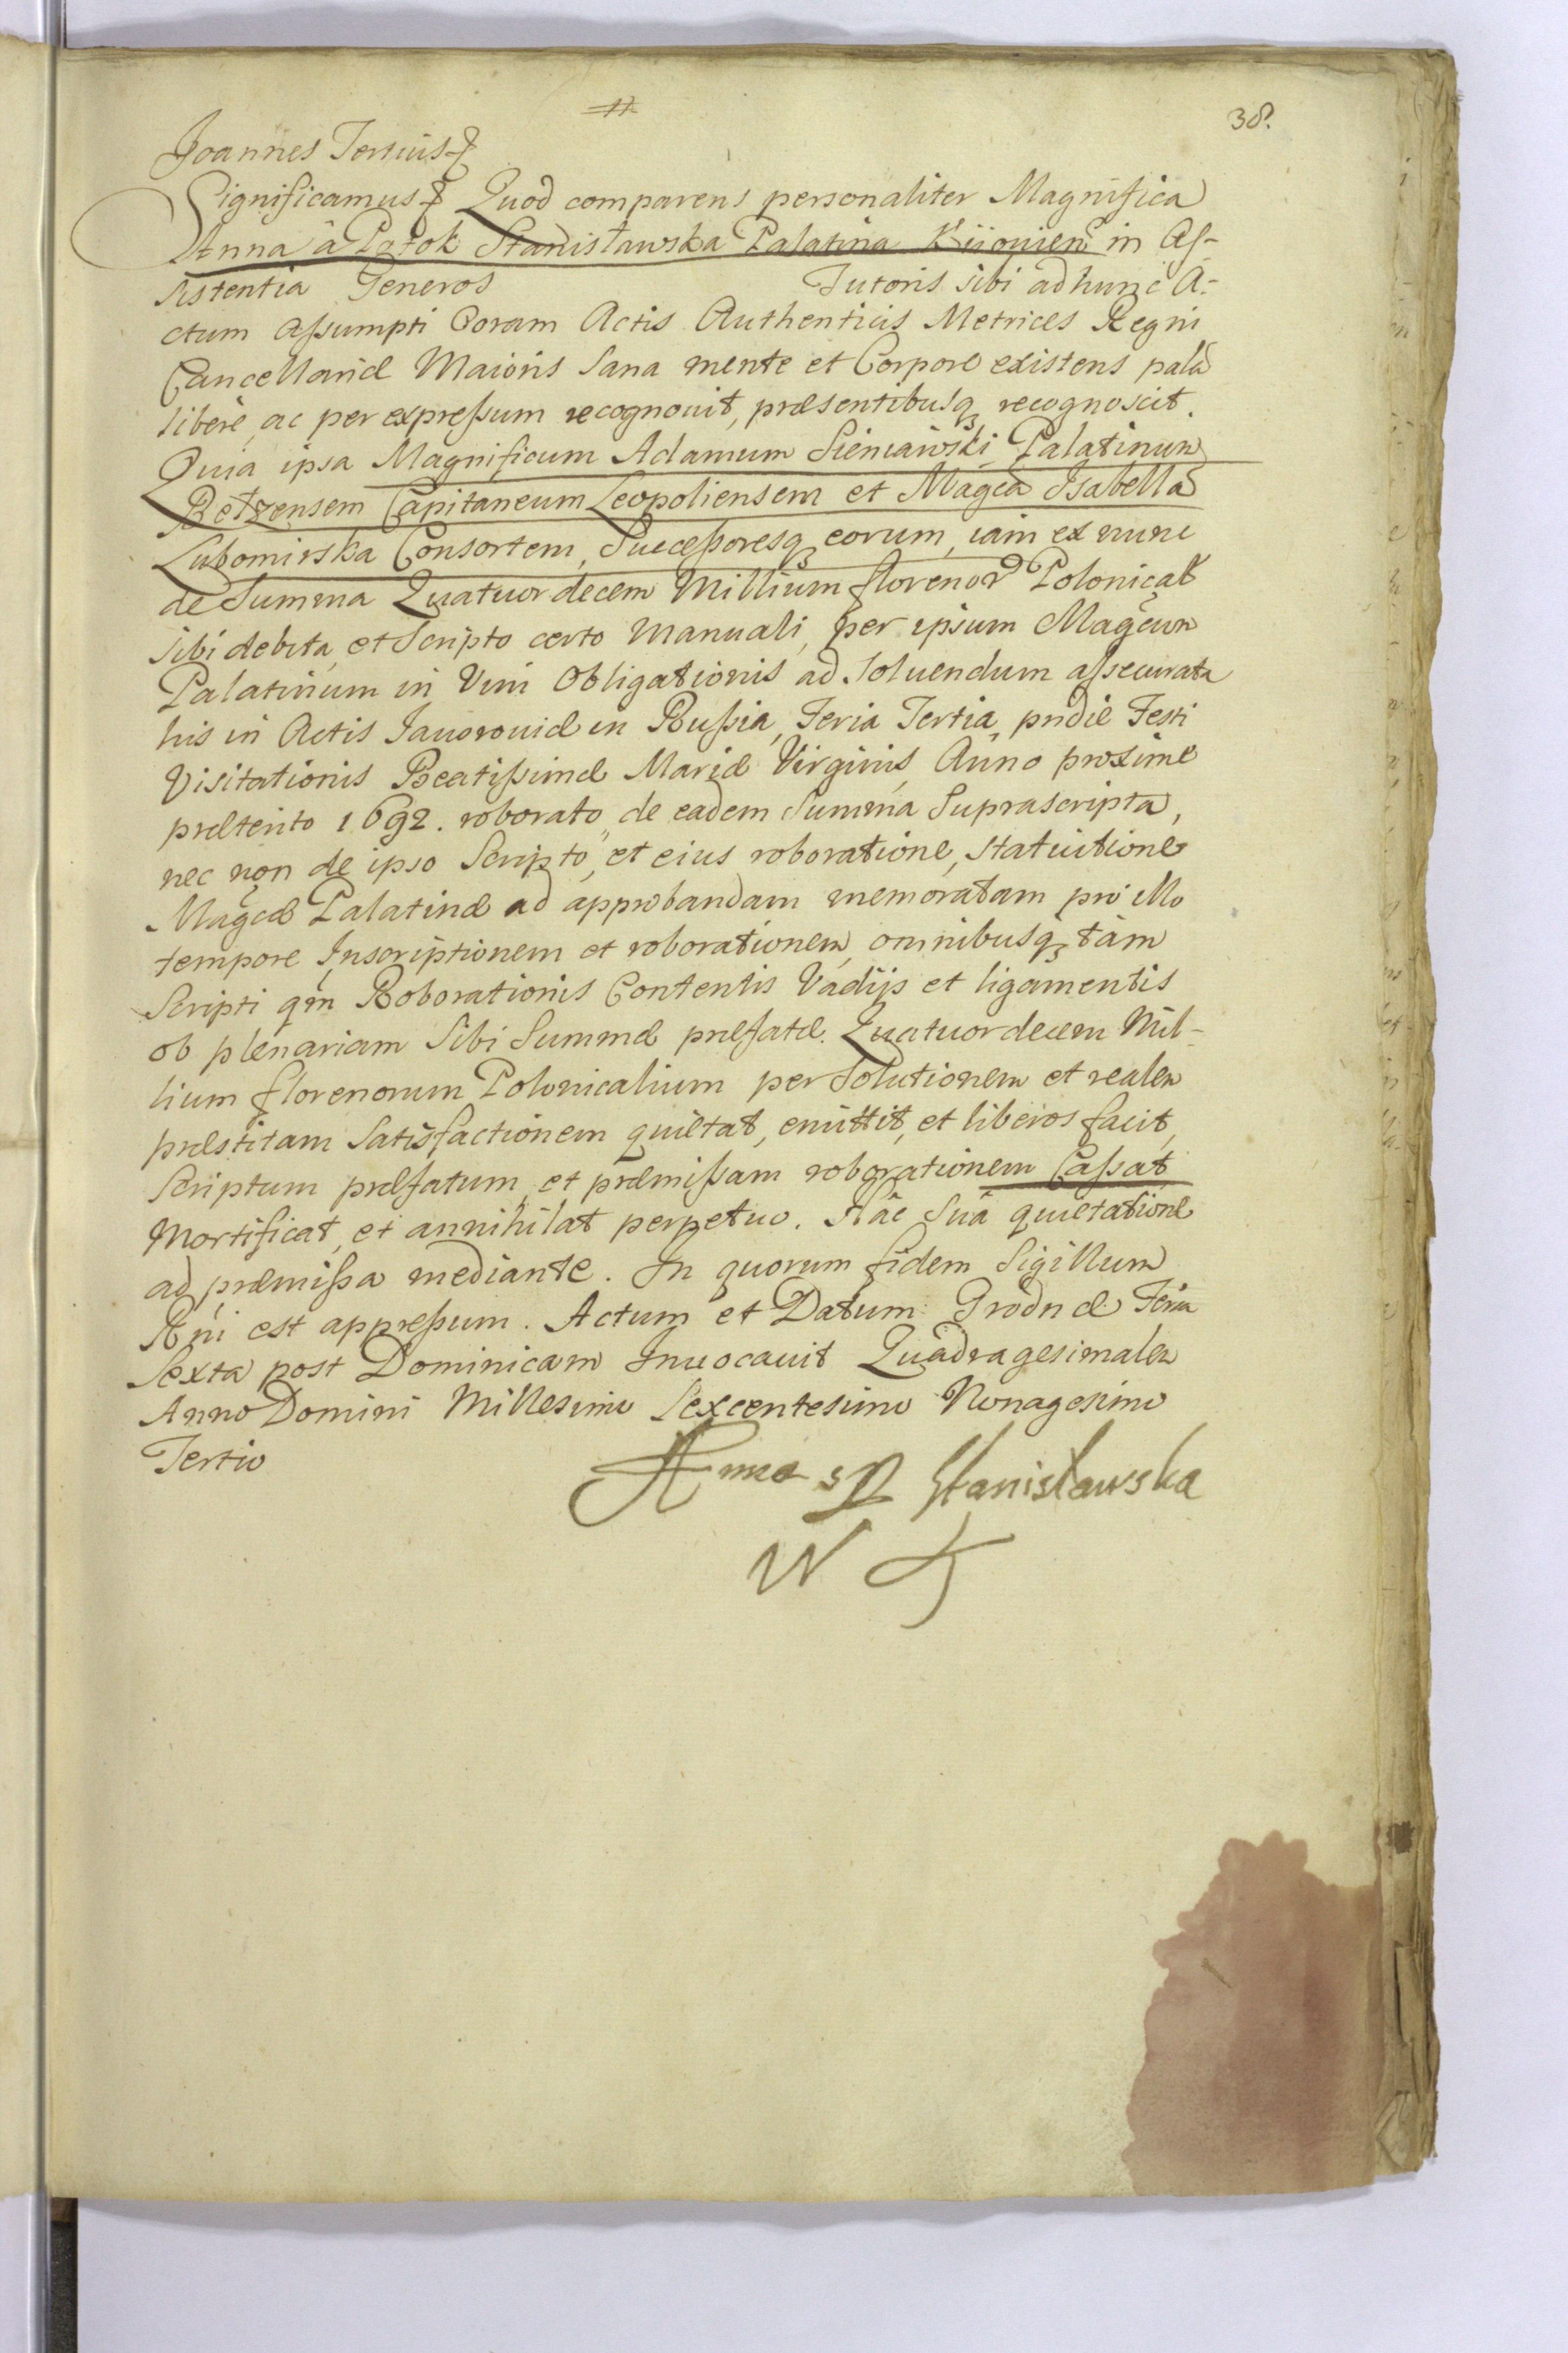 38.
Joannes Tertius
Significamus Quod comparens personaliter Magnifica
Anna à Potok Stanisławska Palatina Kiiouien in As-
sistentia Generos Tutoris sibi ad hunc A-
ctum assumpti Coram Actis Authenticis Metrices Regni
Cancellariæ Maioris sana mente et Corpore existens palã
liberè, ac per expressum recognouit, præsentibusq recognoscit.
Quia ipsa Magnificum Adamum Sieniawski Palatinum
Betzensem Capitaneum Leopoliensem et Magcã Isabellã
Lubomirska Consortem, Successoresq eorum, iam ex nunc
de Summa Quatuordecem Millium florenor Polonical
sibi debita, et Scripto certo Manuali, per ipsum Magcum
Palatinum in Vim Obligationis ad soluendum assecurata
his in Actis Jauorouiæ in Russia, Feria Tertia, pridie Festi
Visitationis Beatissimæ Mariæ Virginis, Anno proxime
præterito 1692. roborato, de eadem Summa Suprascripta,
nec non de ipso Scripto, et eius roboratione, statuitione
Magcæ Palatinæ ad approbandam memoratam pro illo
tempore Inscriptionem et roborationem, omnibusq tàm
Scripti qm Roborationis Contentis Vadijs et ligamentis
ob plenariam Sibi Summæ præfatæ. Quatuordecem Mil-
lium florenorum Polonicalium persolutionem et realem
præstitam Satisfactionem quietat, emittit, et liberos facit,
Scriptum præfatum, et præmissam roborationem Cassat
Mortificat, et annihilat perpetuo. Hâc Suâ quietatione
ad præmissa mediante. In quorum fidem Sigillum
Rni est appressum. Actum et Datum Grodnæ Feria
Sexta post Dominicam Inuocauit Quadragesimalem
Anno Domini Millesimo Sexcentesimo Nonagesimo
Tertio
Anna z P Stanisławska
W K